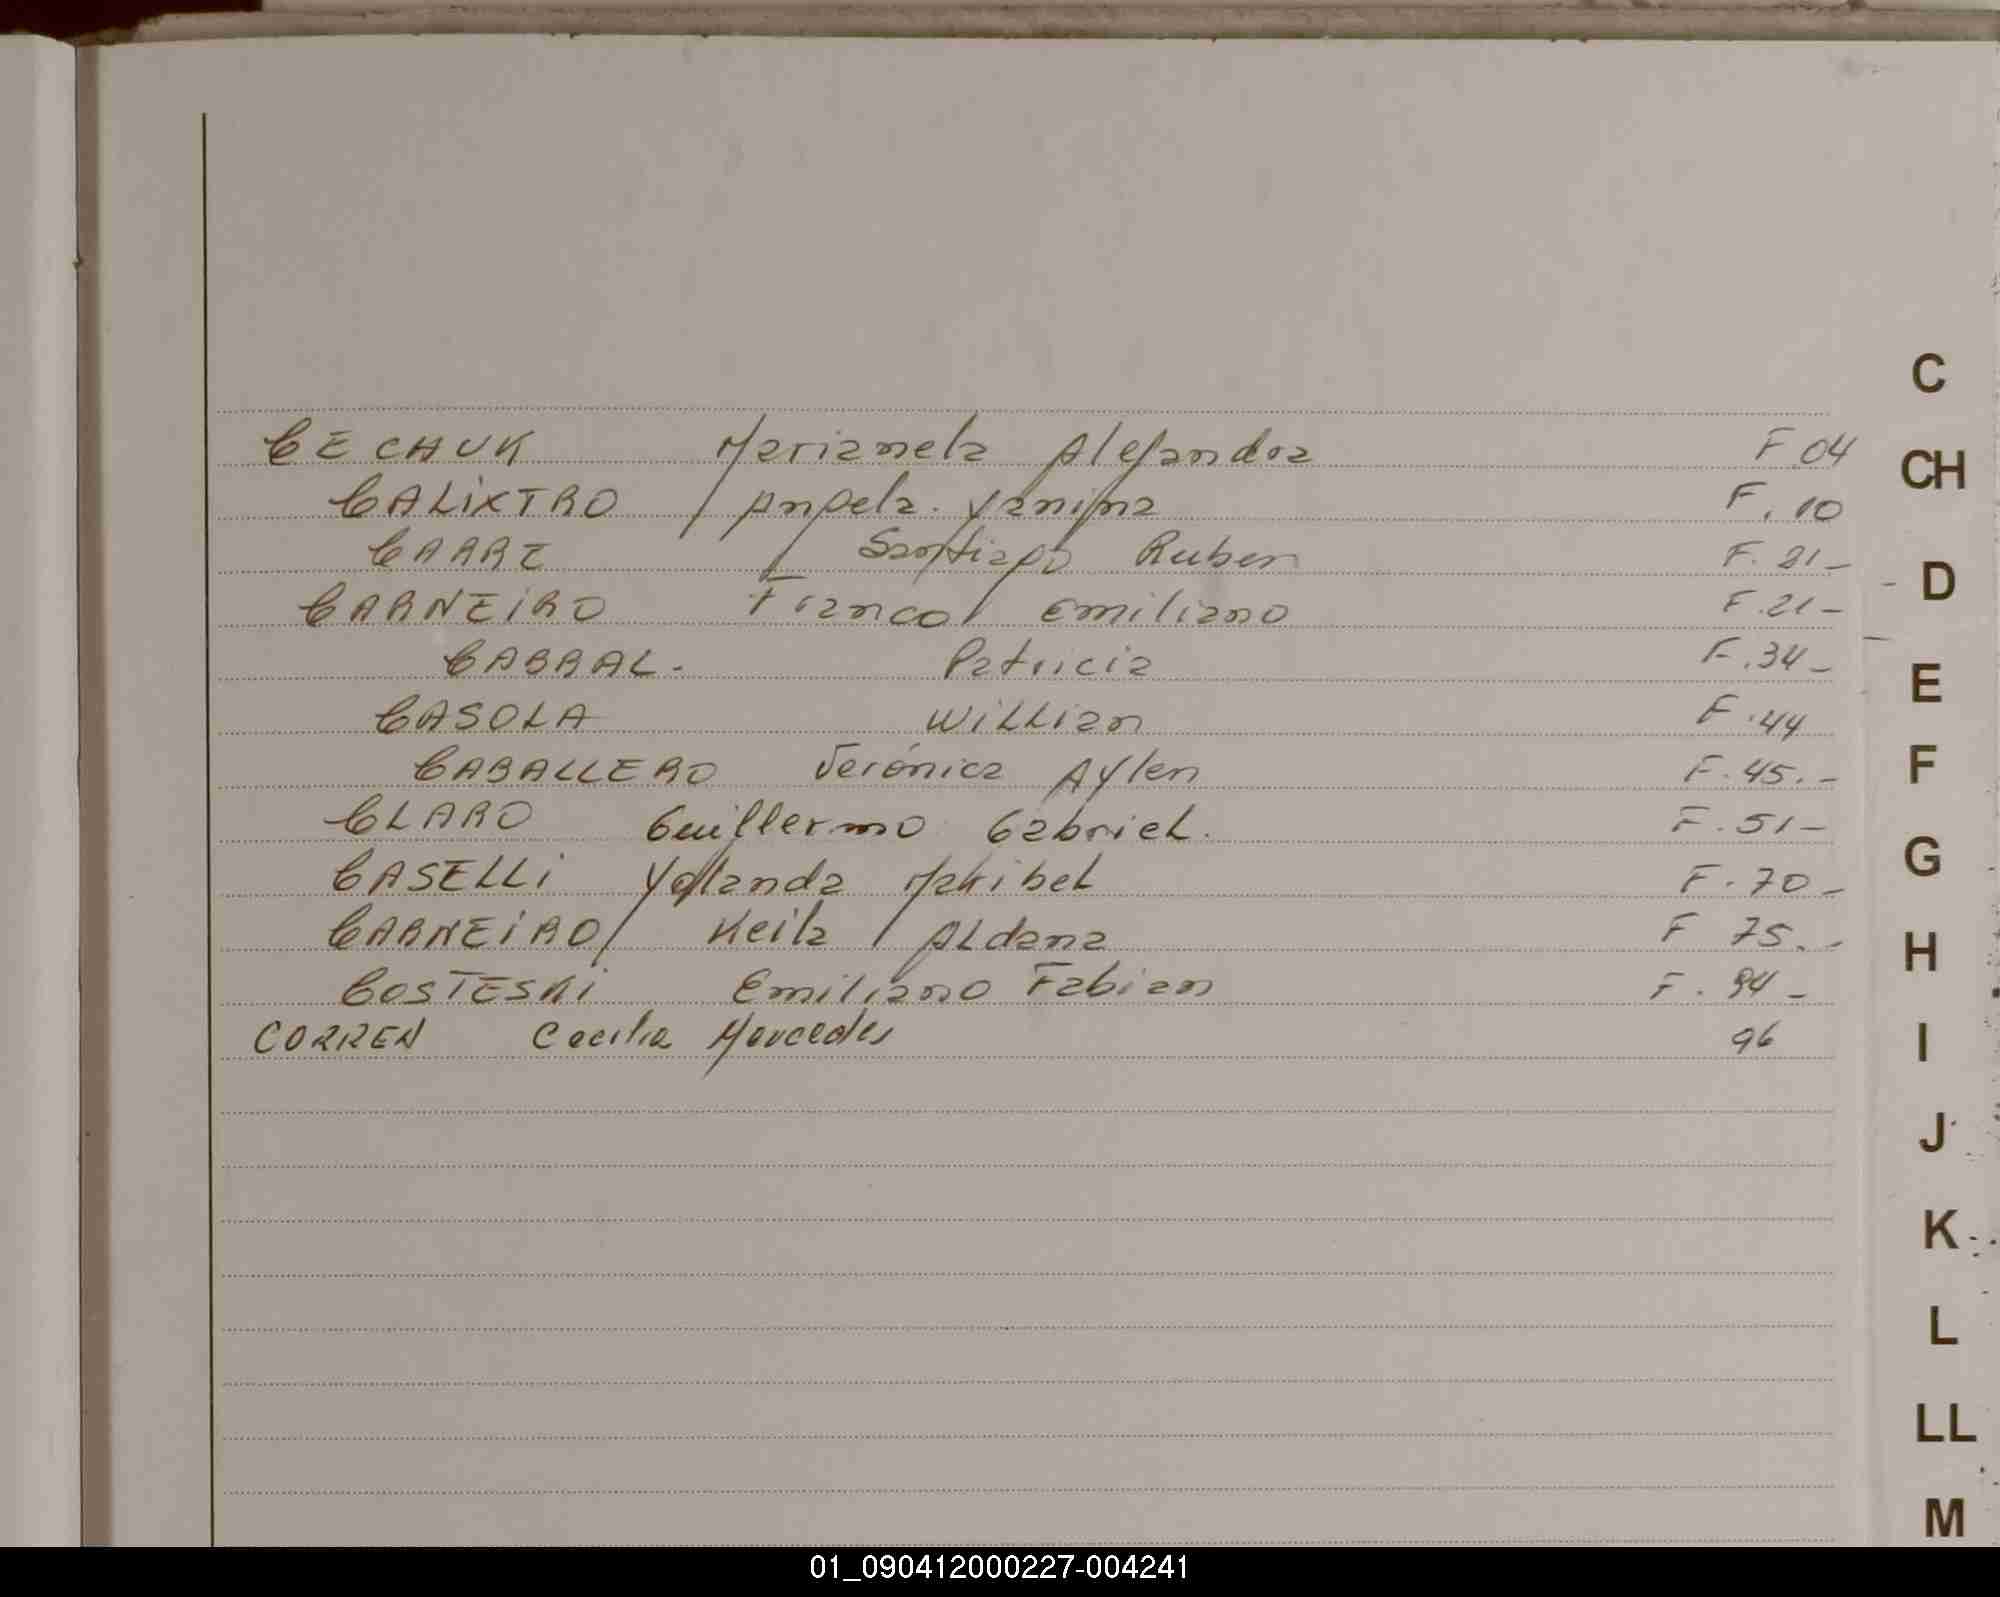 CECHUK Marianela Alejandra F.04
CALIXTRO Angela. Yanina F. 10
CARRE Santiago Ruben F. 21-
CARNEIRO Franco Emiliano F. 21-
CABRAL. Patricia F. 34-
CASOLA Willian F. 44
CABALLERO Verónica Aylen F. 45.-
CLARO Guillermo Gabriel. F. 51-
CASELLI Yolanda Maribel F. 70-
CARNEIRO Keila Aldana F 75.-
COSTESKI Emiliano Fabian F. 94-
CORREN Cecilia Mercedes 96
C
CH
D
E
F
G
H
I
J
K
L
LL
M
01_090412000227-004241